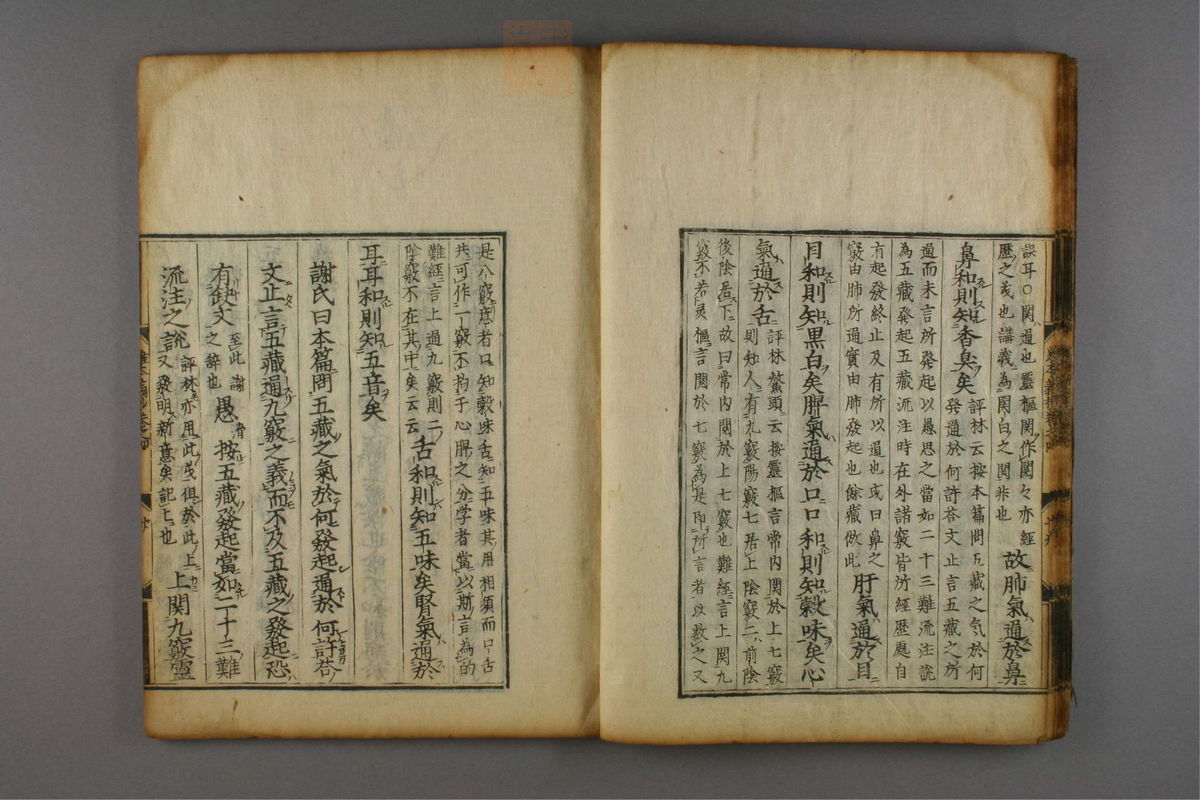 誤耳○関通也靈樞関作関々亦経
歴之義也講義為関白之関非也
故肺氣通於鼻
鼻和則知香臭矣
評林云按本篇問五藏之気於何
發通於何許答文止言五藏之所
通而未言所發起以愚思之當如二十三難流注說
為五藏發起五藏流注時在外諸竅皆所經歷應自
有起發終止及有所以通也或曰鼻之
竅由肺所通實由肺發起也餘藏倣此
肝氣通於目
目和則知黒白矣脾氣通於口口和則知穀味矣心
氣通於舌
評林鰲頭云按靈樞言常内関於上七竅
則知人有九竅陽竅七居上陰竅二前陰
後陰居下故曰常内関於上七竅也難經言上関九
竅不若灵樞言関於七竅為是即所言者以数之又
是八竅蓋者口知穀味舌知五味其用相須而口舌
共可作一竅不拘于心脾之分学者當以斯言為的
難經言上通九竅則二
陰竅不在其中矣云云
舌和則知五味矣腎氣通於
耳耳和則知五音矣
謝氏曰本篇問五藏之氣於何發起通於何許答
文止言五藏通九竅之義而不及五藏之發起恐
有缺文
至此謝
之辞也
愚
滑
按五藏發起當如二十三難
流注之説
評林亦用此義俱於此上
又發明新意矣記上也
上関九竅靈